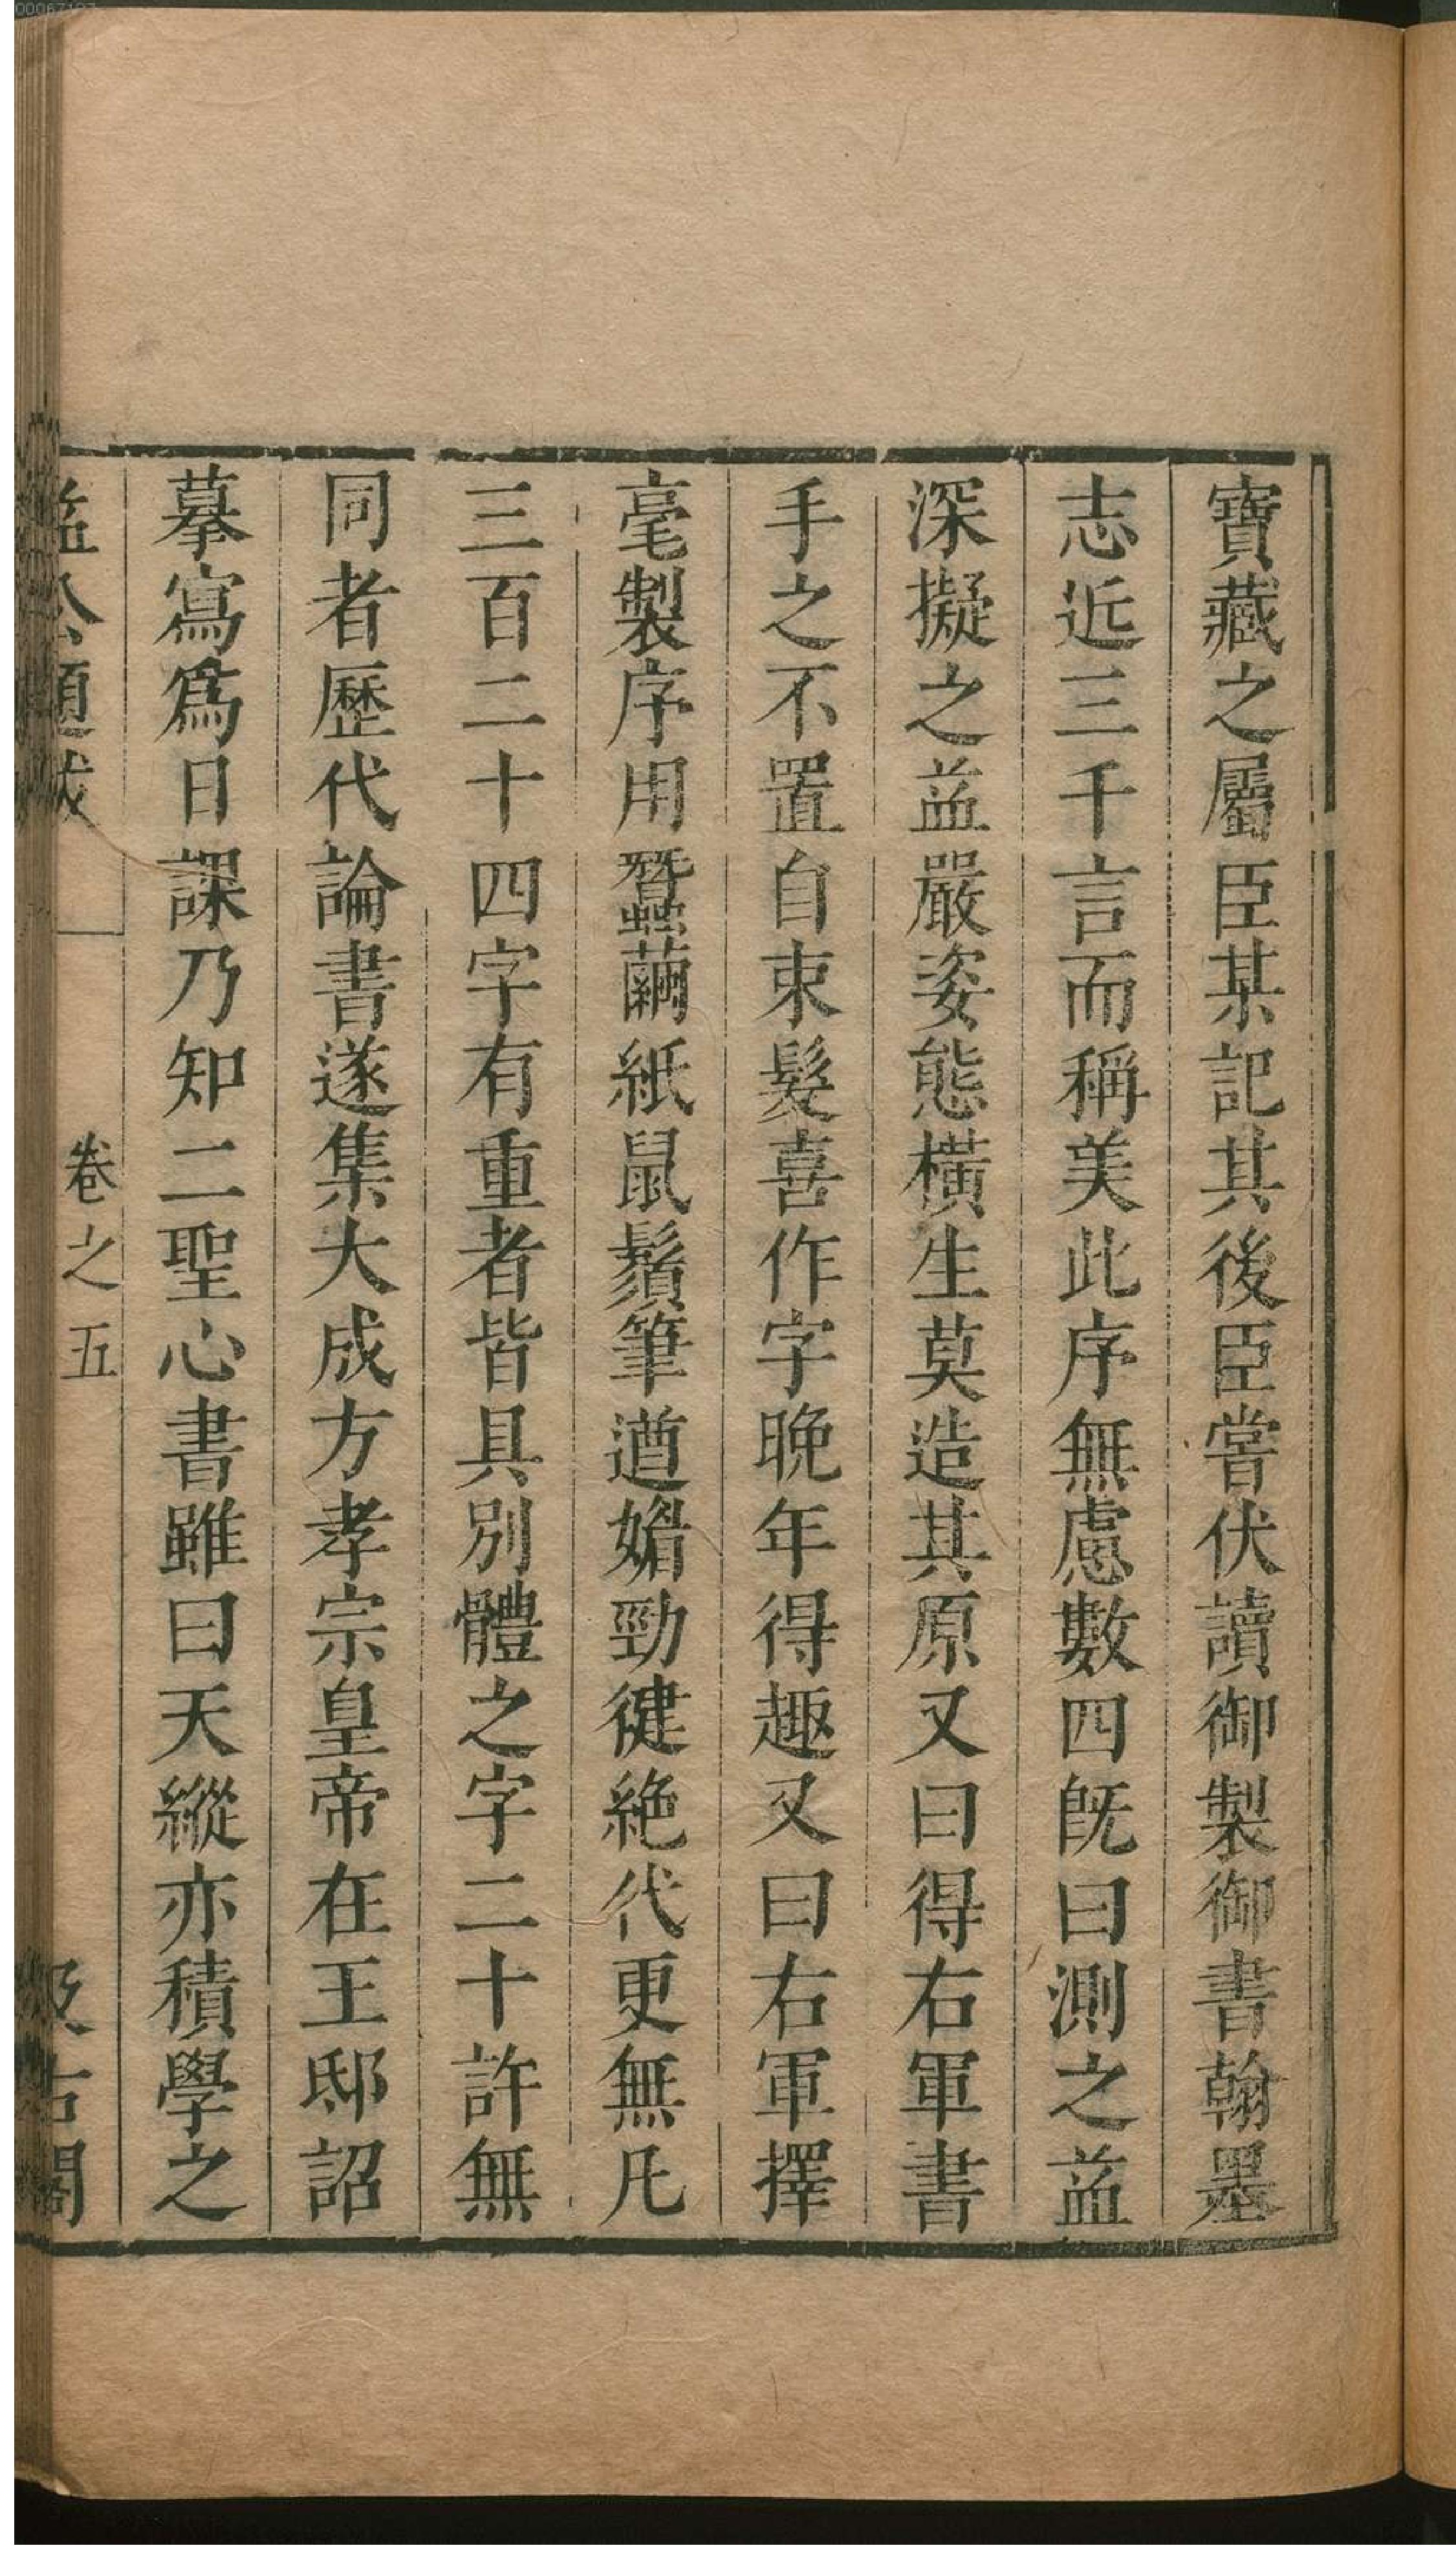 寶藏之屬臣某記其後臣嘗伏讀御製御書翰墨
志近三千言而稱美此序無慮數四旣曰測之益
深擬之益嚴姿態橫生莫造其原又曰得右軍書
手之不置自束髮喜作字晚年得趣又曰右軍擇
毫製序用蠶繭紙鼠鬚筆遒媚勁健絶代更無凡
三百二十四字有重者皆具別體之字二十許無
同者歷代論書遂集大成方孝宗皇帝在王邸詔
摹寫爲日課乃知二聖心書雖曰天縱亦積學之
益公題跋 卷之五 汲古閣
00067197